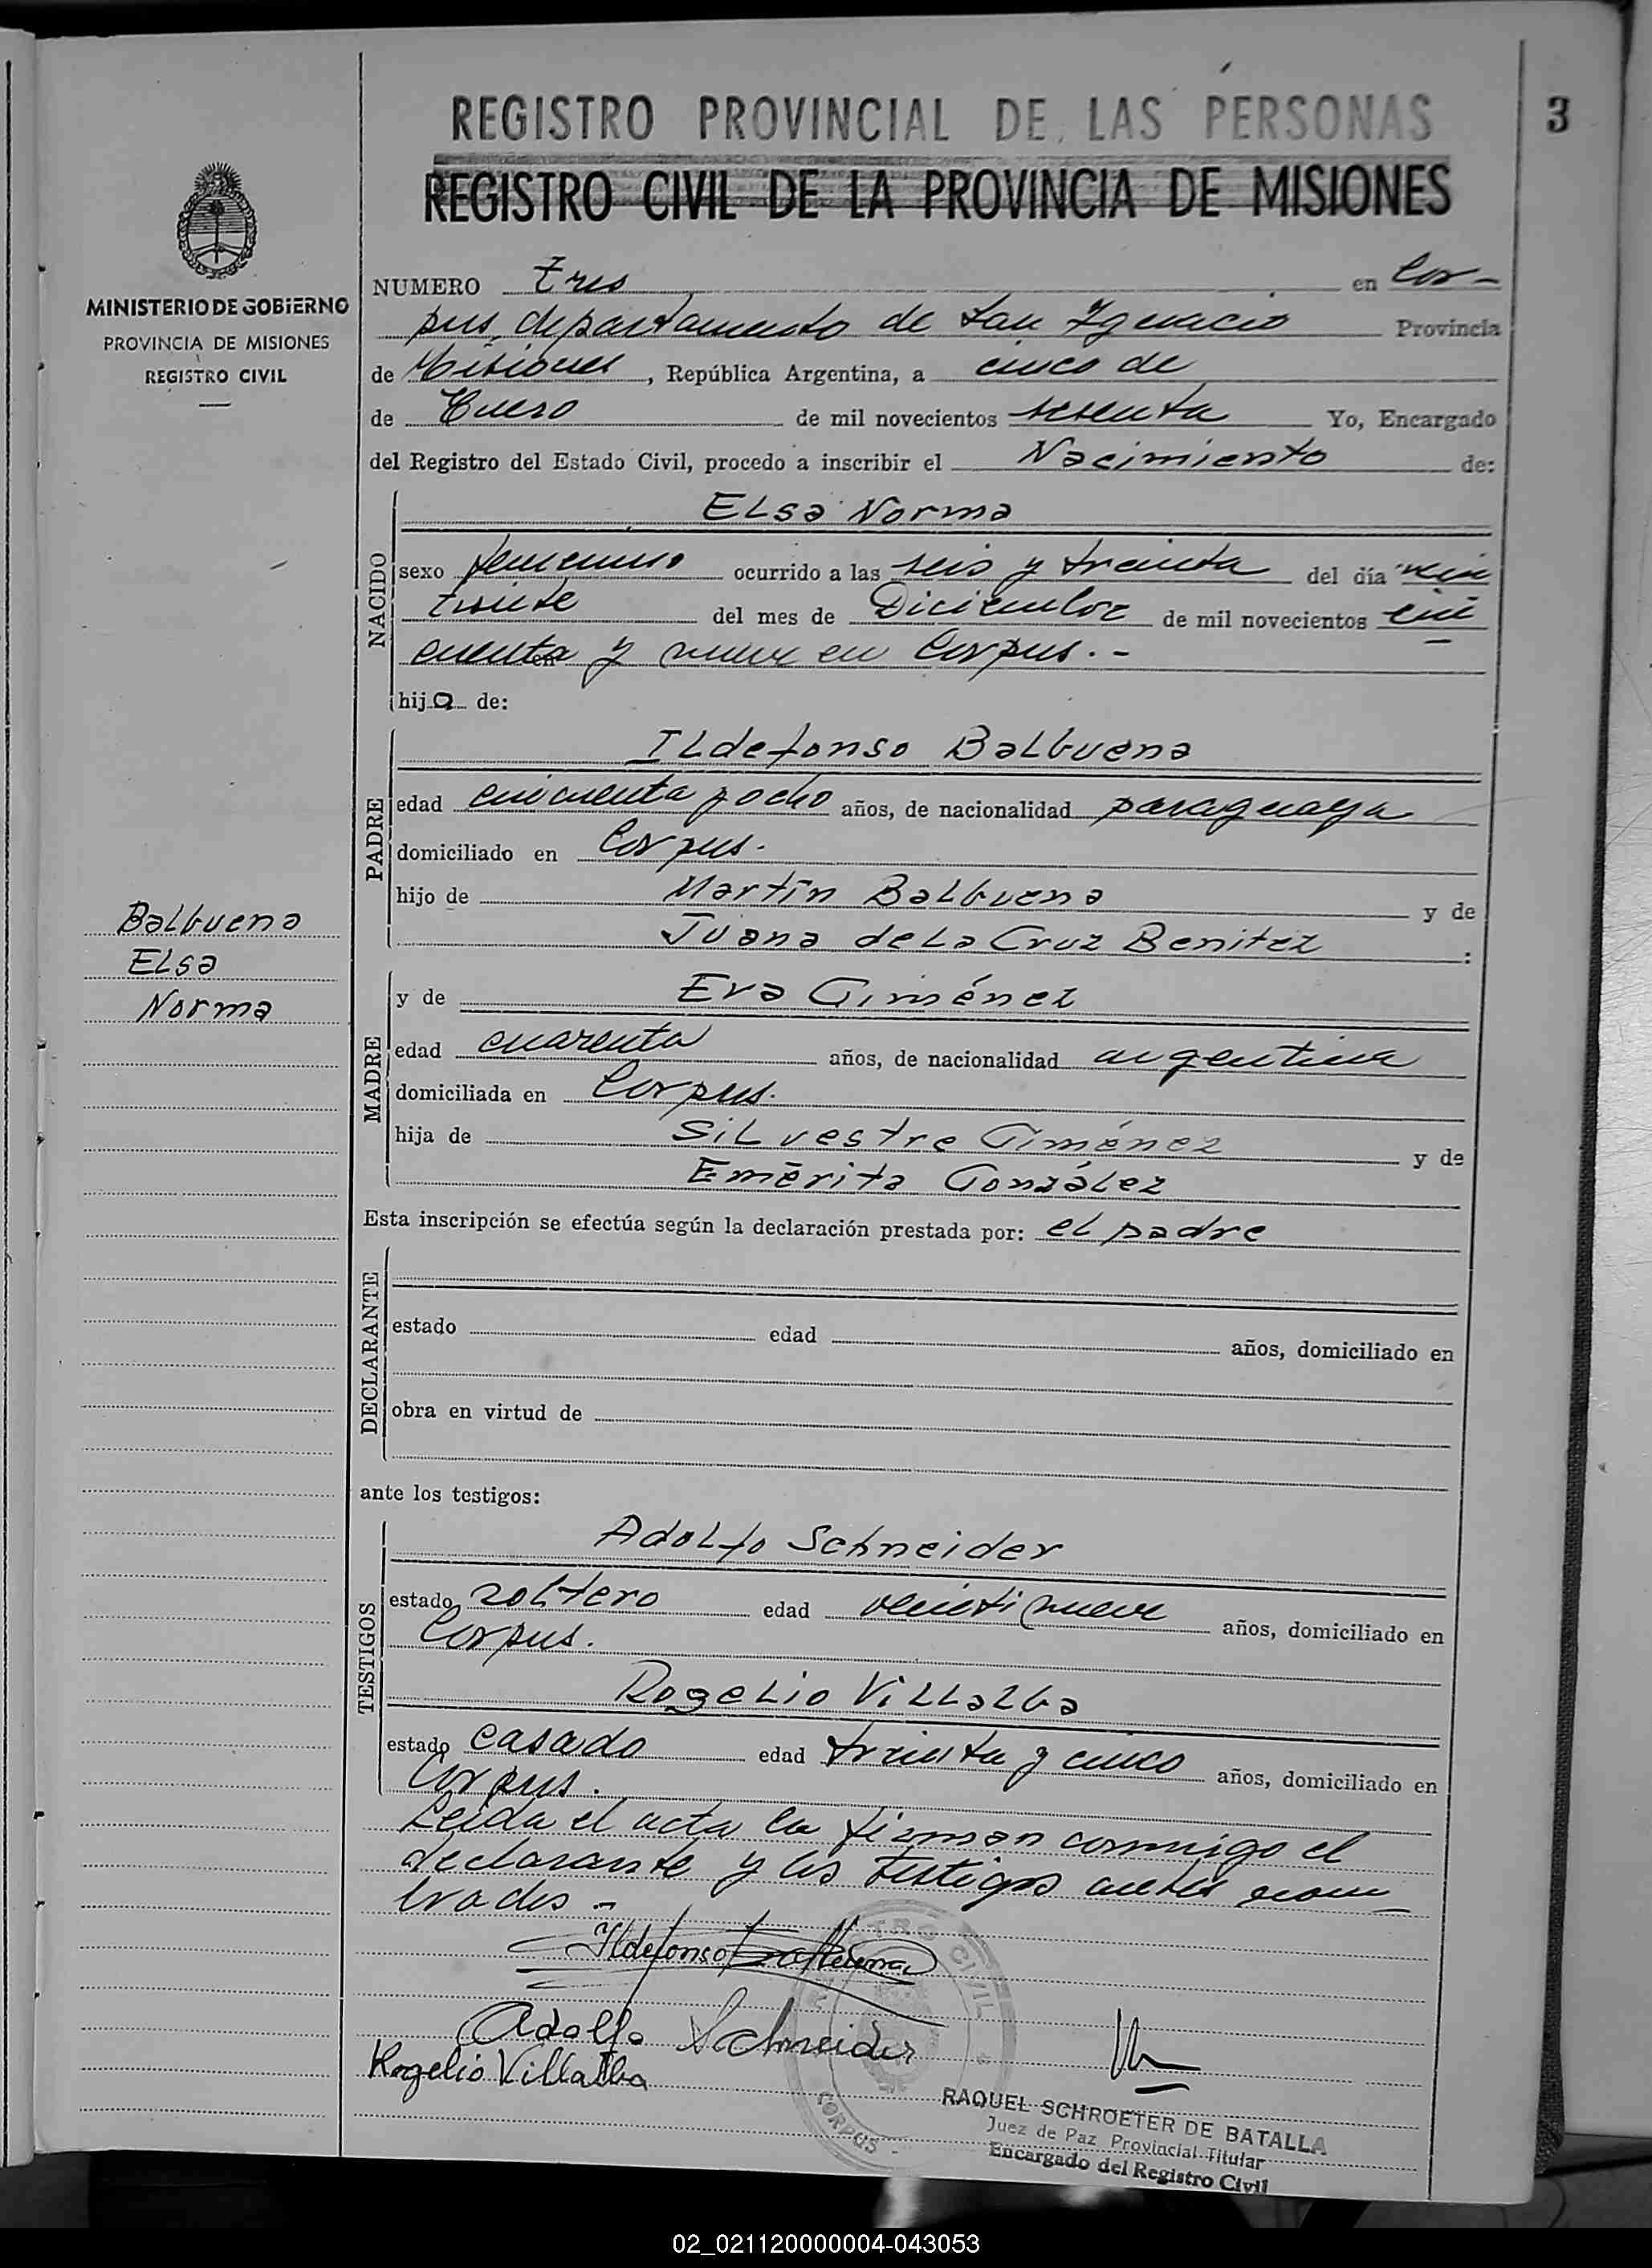 REGISTRO PROVINCIAL DE LAS PERSONAS
3
REGISTRO CIVIL DE LA PROVINCIA DE MISIONES
MINISTERIO DE GOBIERNO
PROVINCIA DE MISIONES
REGISTRO CIVIL
NUMERO tres en Cor-
pus, departamento de San Ignacio Provincia
de Misiones, República Argentina, a cinco de
de Enero de mil novecientos sesenta Yo, Encargado
del Registro del Estado Civil, procedo a inscribir el Nacimiento de:
NACIDO
Elsa Norma
sexo femenino ocurrido a las seis y treinta del día vein
tisiete del mes de Diciembre de mil novecientos cin
cuenta y nueve en Corpus.-
hija de:
PADRE
Ildefonso Balbuena
edad cincuenta y ocho años, de nacionalidad paraguaya
domiciliado en Corpus.
hijo de Martín Balbuena y de
Juana de La Cruz Benitez :
Balbuena
Elsa
Norma
MADRE
y de Eva Giménez
edad cuarenta años, de nacionalidad argentina
domiciliada en Corpus.
hija de Silvestre Giménez y de
Emérita González
Esta inscripción se efectúa según la declaración prestada por: el padre
DECLARANTE
estado edad años, domiciliado en
obra en virtud de
ante los testigos:
TESTIGOS
Adolfo Schneider
estado soltero edad veintinueve años, domiciliado en
Corpus.
Rogelio Villalba
estado casado edad treinta y cinco años, domiciliado en
Corpus.
Leida el acta la firman conmigo el
declarante y los testigos antes nom
brados -
Ildefonso Balbuena
Adolfo Schneider
Rogelio Villalba
REGISTRO CIVIL
CORPUS
RAQUEL SCHROETER DE BATALLA
Juez de Paz Provincial Titular
Encargado del Registro Civil
02_021120000004-043053